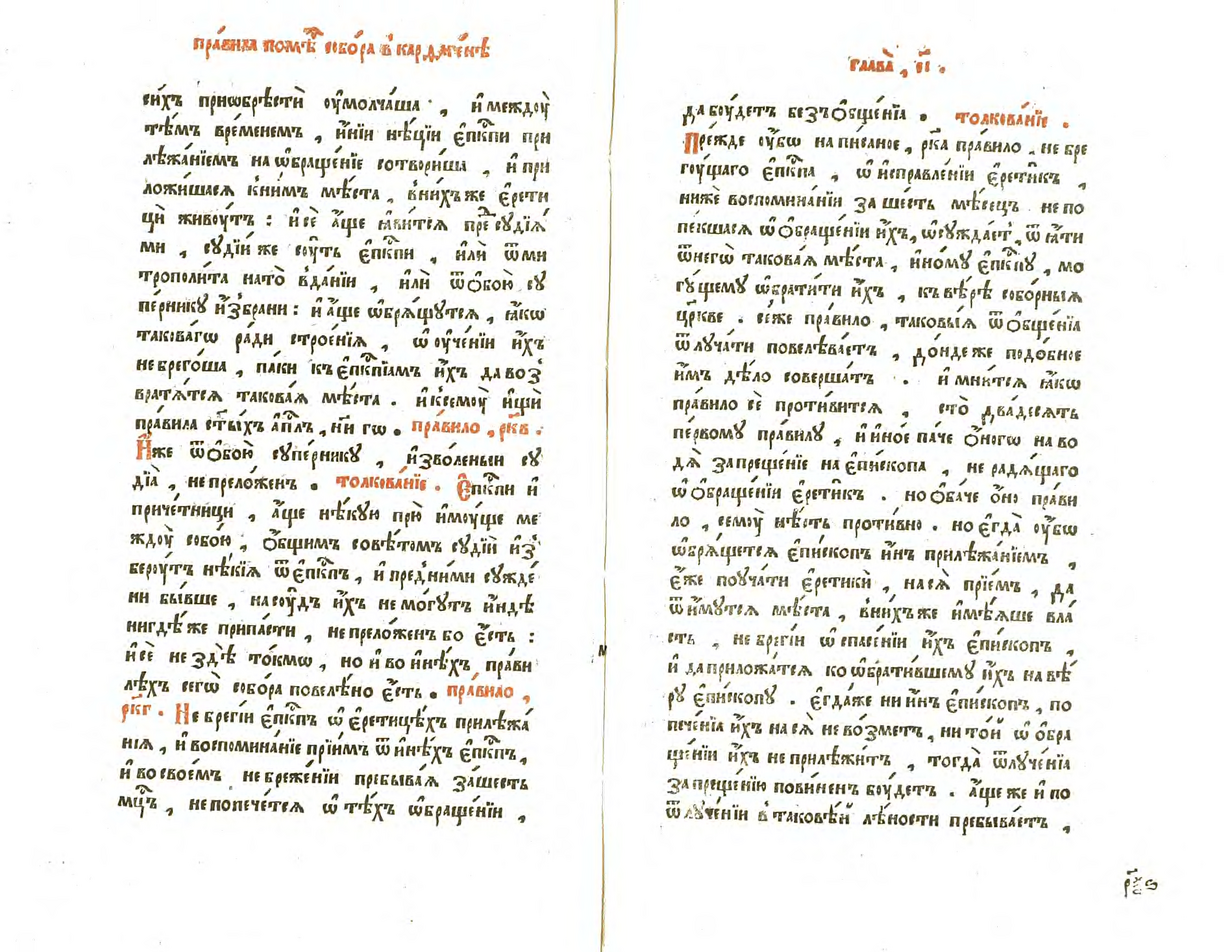 пра́вила помѣ́ собо́ра в карѳаге́нѣ
си́хъ приѡбрѣ́сти ᲂу҆молча́ша , и҆ междоу̀
тѣ́мъ вре́менемъ , и҆́нїи нѣ́цїи є҆пⷭ҇кпи при
лѣжа́нїемъ на ѡ҆браще́нїе сотвори́ша , и҆ при
ложи́шася книмъ мѣ́ста , вни́хъже є҆рети
цы̀ живоу́тъ : и҆ сѐ а҆́ще ꙗ҆ви́тся преⷣ сꙋдїѧ́
ми , сꙋдїи́ же соу́ть є҆пⷭ҇кпи , и҆лѝ ѿ ми
трополи́та на то̀ вда́нїи , и҆лѝ ѿ ѻ҆бою̀ сꙋ
пе́рникꙋ и҆збрани : и҆ а҆́ще ѡ҆брѧ́щꙋтся , ꙗ҆́кѡ
такова́гѡ ра́ди строе́нїѧ , ѡ҆ оу҆че́нїи и҆́хъ
небрего́ша , па́ки къ є҆пⷭ҇кпїамъ и҆́хъ да воз̾
вратѧ́тся такова́ѧ мѣ́ста . и҆ ксемоу̀ и҆щѝ
пра́вила ст҃ы́хъ а҆пⷭ҇лъ , н҃и гѡ . пра́вило , рк҃в .
И҆́же ѿ ѻ҆бою̀ сꙋпе́рникꙋ , и҆зво́леныи сꙋ
дїа̀ , непрело́женъ . толкова́нїе . Є҆пⷭ҇кпи и҆
приче́тницы , а҆́ще нѣ́кꙋю прю̀ и҆мꙋще ме
ждоу̀ собо́ю , ѻ҆́бщимъ совѣ́томъ сꙋдїѝ и҆з̾
бероу́тъ нѣ́кїѧ ѿ є҆пⷭ҇кпъ , и҆ предни́ми сꙋжде́
ни бы́вше , на соу́дъ и҆́хъ немо́гꙋтъ и҆́ндѣ
нигдѣ́же припа́сти , непрело́женъ бо є҆́сть :
и҆ сѐ не здѣ̀ то́кмѡ , но и҆ во и҆нѣ́хъ прави
лѣхъ сегѡ̀ собо́ра повелѣ́но є҆́сть . пра́вило ,
рк҃г . Небреги́и є҆пⷭ҇кпъ ѡ҆ є҆рети́цѣхъ прилѣжа́
нїѧ , и҆ воспомина́нїе прїи́мъ ѿ и҆нѣ́хъ є҆пⷭ҇кпъ ,
и҆ восвое́мъ небреже́нїи пребыва́ѧ за ше́сть
мцⷭ҇ъ , непопече́тся ѡ҆ тѣ́хъ ѡ҆браще́нїи ,
глава̀ , є҃і .
да боу́детъ безъ ѻ҆бще́нїа . толкова́нїе .
Пре́жде оу҆́бѡ написаное , рк҃а пра́вило . небре
гоу́щаго є҆пⷭ҇кпа , ѡ҆ и҆справле́нїи є҆рети́къ ,
нижѐ воспомина́нїи за ше́сть мѣ́сецъ непо
пе́кшася ѡ҆ ѻ҆браще́нїи и҆́хъ, ѡ҆сꙋжда́етъ, ѿꙗ҆ти
ѿнегѡ̀ такова́ѧ мѣ́ста , и҆но́мꙋ є҆пⷭ҇кпꙋ , мо
гꙋ́щемꙋ ѡ҆брати́ти и҆́хъ , къ вѣ́рѣ собо́рныѧ
цр҃кве . се́ же пра́вило , таковы́ѧ ѿ ѻ҆бще́нїа
ѿлꙋча́ти повелѣва́етъ , до́ндеже подо́бное
и҆́мъ дѣ́ло соверша́тъ . и҆ мни́тся ꙗ҆́кѡ
пра́вило сѐ проти́вится , сто̀ два́десять
пе́рвомꙋ пра́вилꙋ , и҆ и҆но́е па́че ѻ҆́ногѡ наво
дѧ̀ запреще́нїе на є҆пи́скопа , нерадѧ́щаго
ѡ҆ ѻ҆браще́нїи є҆рети́къ . но ѻ҆ба́че ѻ҆но̀ пра́ви
ло , семоу̀ нѣ́сть проти́вно . но є҆гда̀ оу҆́бѡ
ѡ҆брѧ́щется є҆пи́скопъ и҆́нъ прилѣжа́нїемъ ,
є҆́же поуча́ти є҆ретикѝ , на сѧ̀ прїе́мъ , да
ѿи́мꙋтся мѣ́ста , вни́хъже и҆мѣ́ѧше вла́
сть , небреги́и ѡ҆ спасе́нїи и҆́хъ є҆пи́скопъ ,
и҆ да прило́жатся ко ѡ҆брати́вшемꙋ и҆́хъ на вѣ́
рꙋ є҆пи́скопꙋ . є҆гда́же ни и҆́нъ є҆пи́скопъ , по
пече́нїа и҆́хъ на сѧ̀ не во́зметъ , ни то́й ѡ҆ ѡ҆бра
ще́нїи и҆́хъ неприлѣжи́тъ , тогда̀ ѿлꙋче́нїа
запреще́нїю пови́ненъ боу́детъ . а҆́ще же и҆ по
ѿлꙋче́нїи в такове́й лѣ́ности пребыва́етъ ,